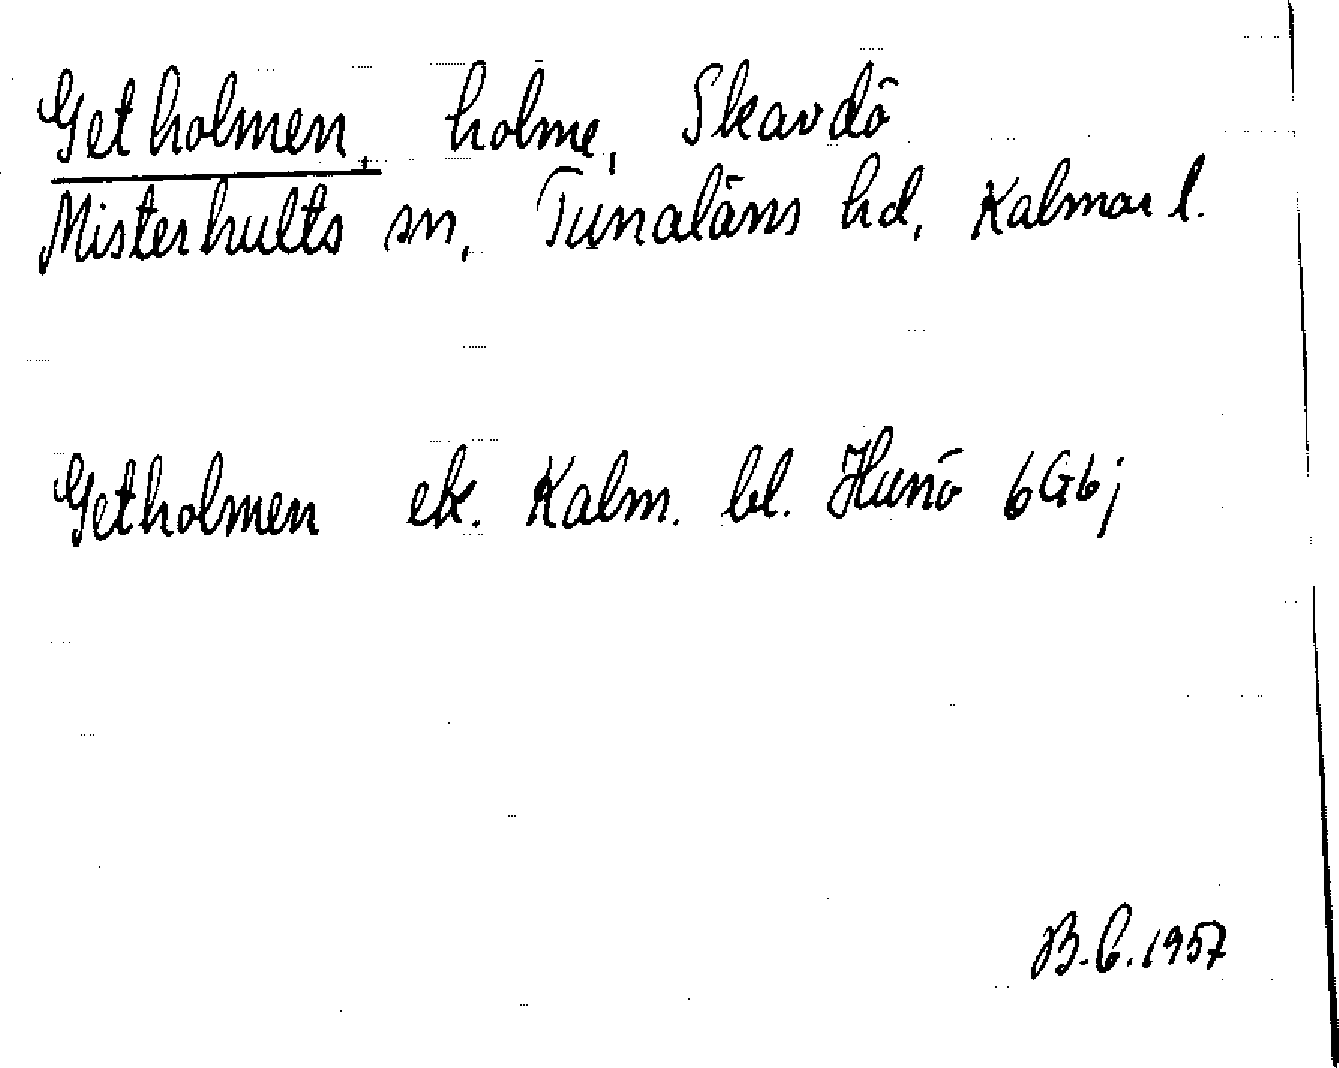 Getholmen, holme, Skavdö
Misterhults sn, Tunaläns hd, Kalmar l.
Getholmen ek. Kalm. bl. Hunö 6G6j
B.C.1957